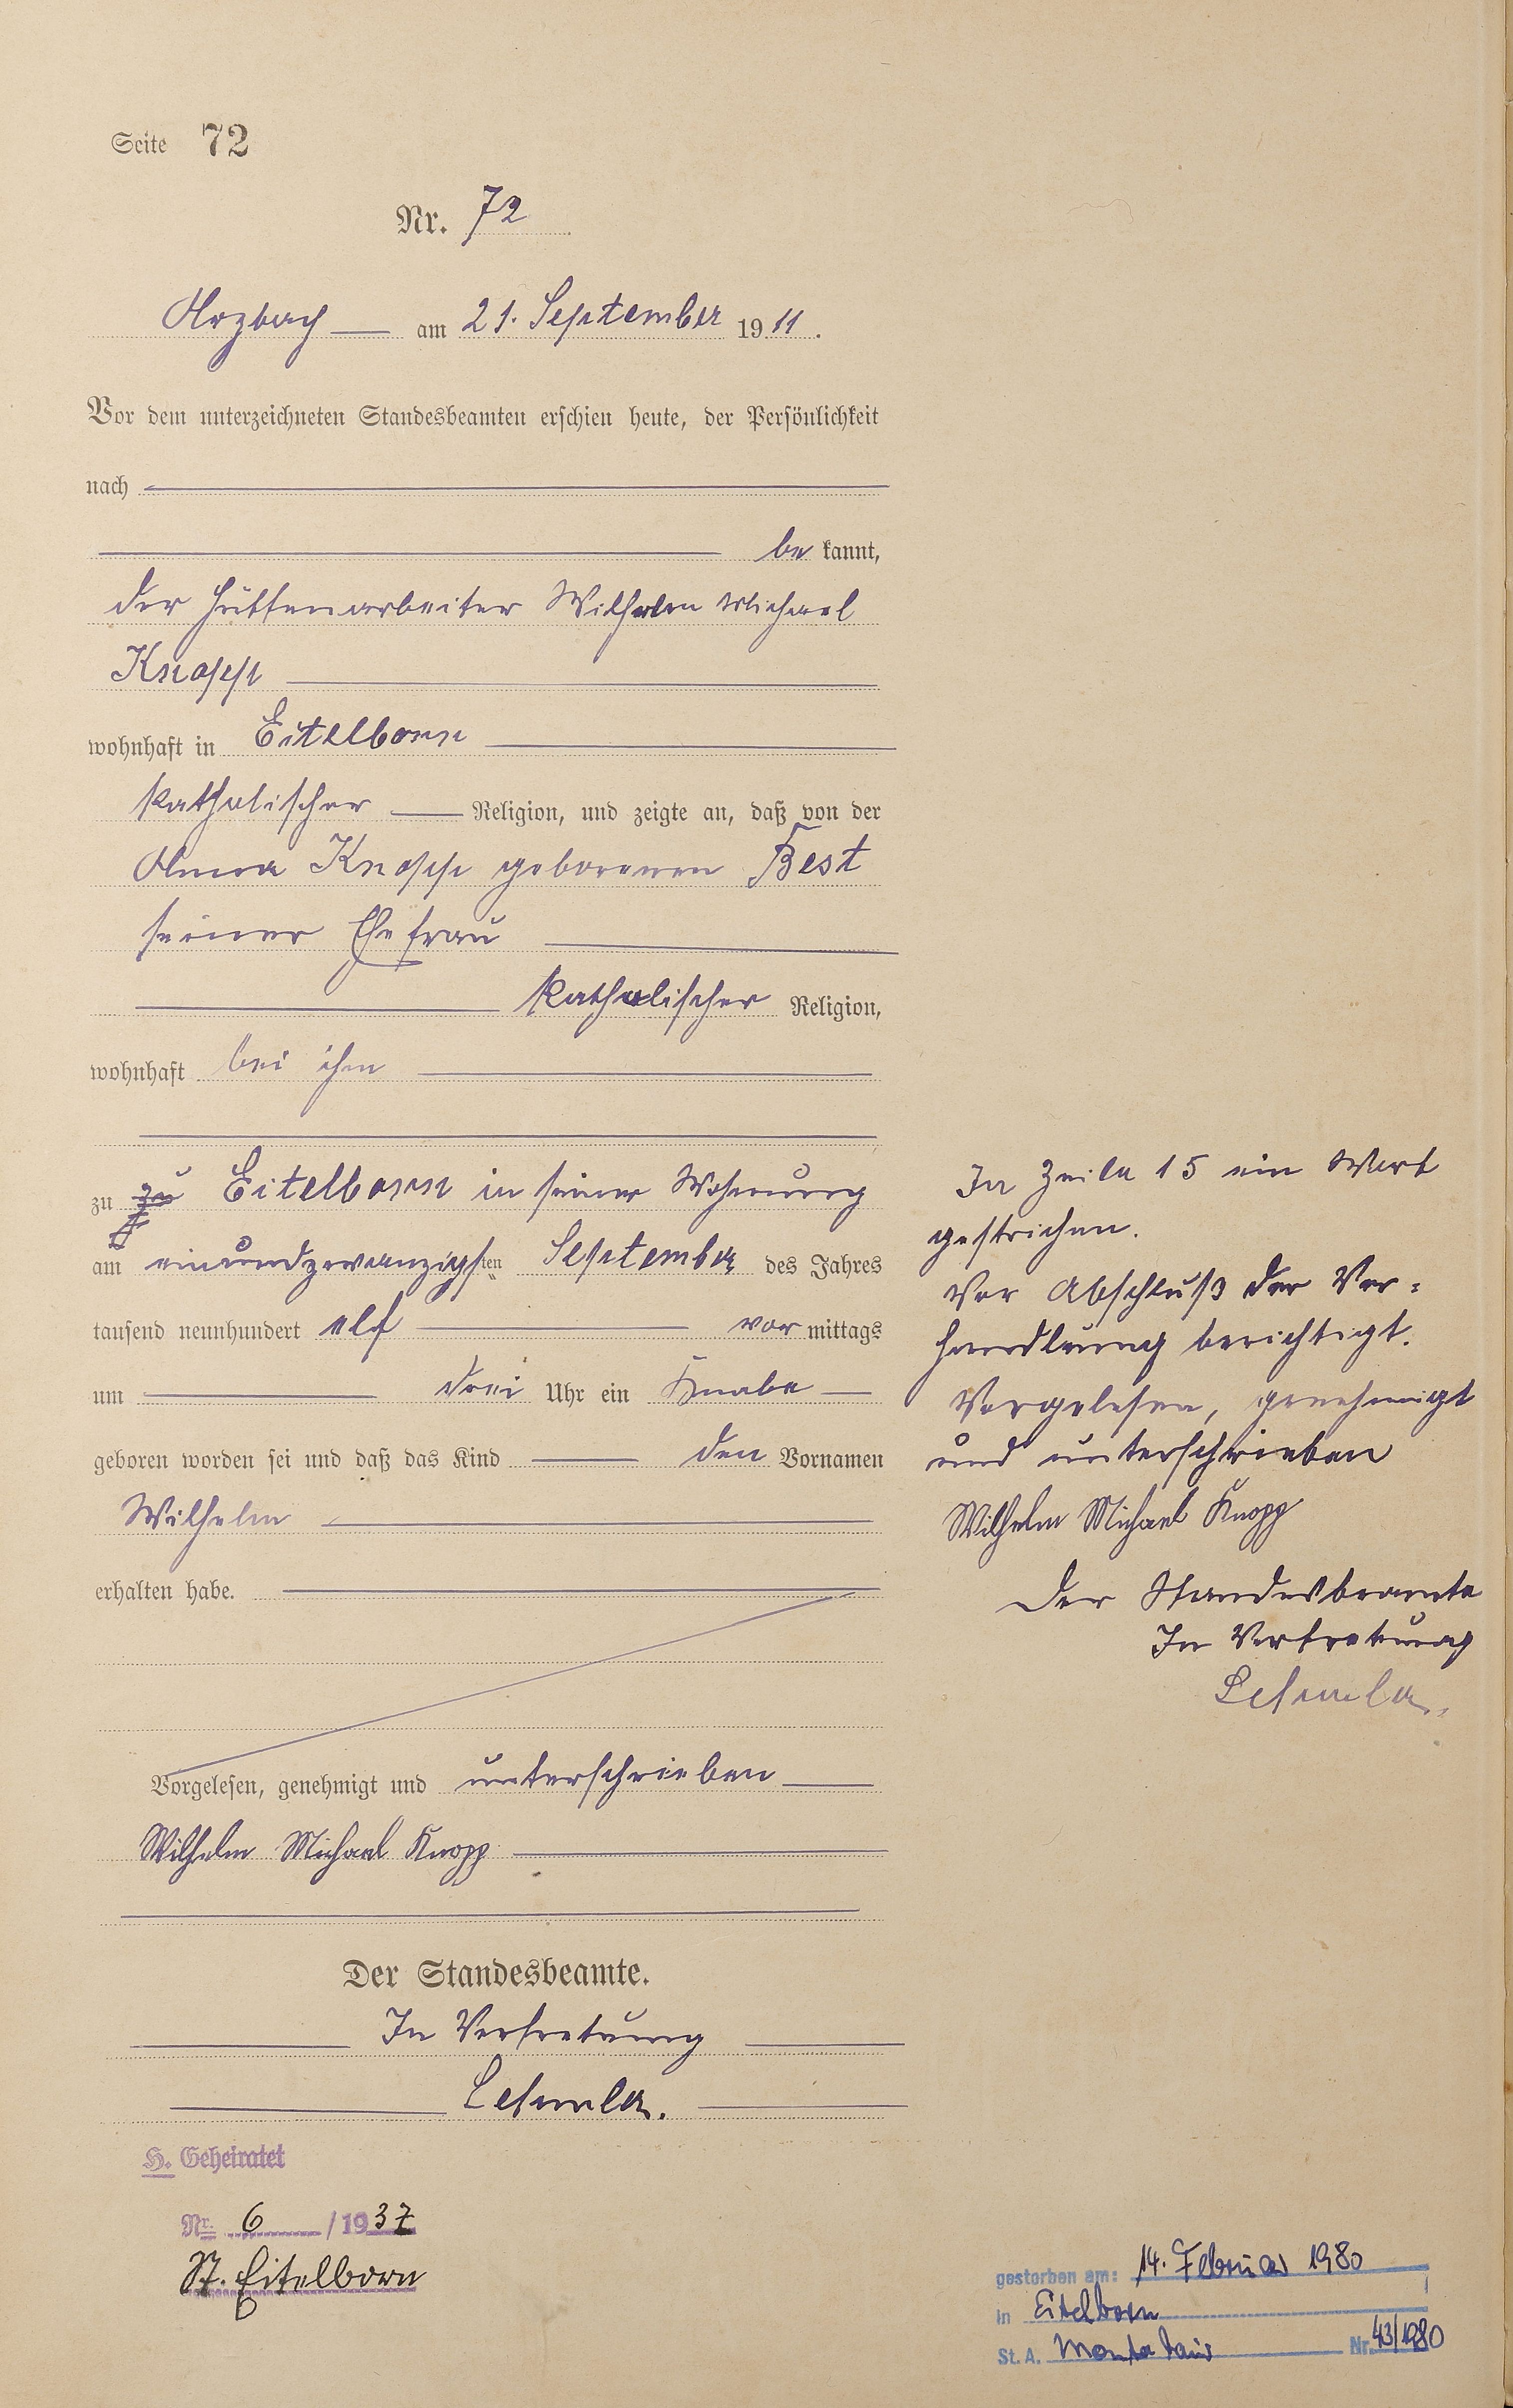 Seite 72
Nr. 72
Arzbach am 21. September 1911.
Vor dem unterzeichneten Standesbeamten erschien heute, der Persönlichkeit
nach
be kannt,
der Hüttenarbeiter Wilhelm Michael
Knopp
wohnhaft in Eitelborn
katholischer Religion, und zeigte an, daß von der
Anna Knopp geborenen Best
seiner Ehefrau
katholischer Religion,
wohnhaft bei ihm
zu zu Eitelborn in seiner Wohnung
am einundzwanzigsten September des Jahres
tausend neunhundert elf vor mittags
um drei Uhr ein Knabe
geboren worden sei und daß das Kind den Vornamen
Wilhelm
erhalten habe.
Vorgelesen, genehmigt und unterschrieben
Wilhelm Michael Knopp
Der Standesbeamte.
In Vertretung
H. Geheiratet
Nr. 6 / 1937
St. Eitelborn
In Zeile 15 ein Wort
gestrichen.
Vor Abschluß der Ver=
handlung berichtigt.
Vorgelesen, genehmigt
und unterschrieben
Wilhelm Michael Knopp
Der Standesbeamte
In Vertretung
gestorben am: 14. Februar 1980
in Eitelborn
St. A. Montabaur Nr. 43/1980